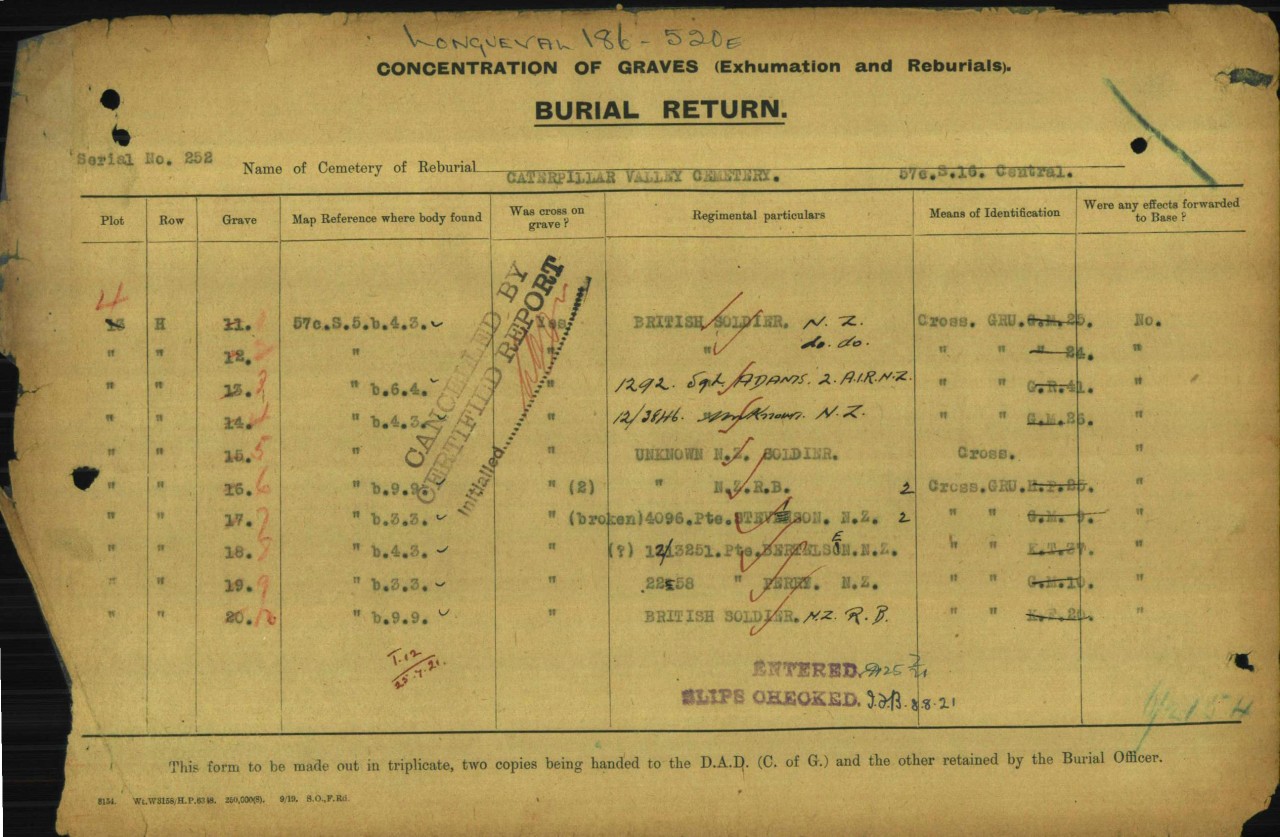 LONGUEVAL 186 - 520E
CONCENTRATION OF GRAVES (Exhumation and Reburials).
BURIAL RETURN.
Serial No. 252
Name of Cemetery of Reburial CATERPILLAR VALLEY CEMETERY. 57c.S.16. Central.
Plot Row Grave Map Reference where body found Was cross on grave? Regimental particulars Means of Identification Were any effects forwarded to Base?
4
H 11. 57c.S.5.b.4.3. Yes BRITISH SOLDIER. N. Z. Cross. GRU. G.M.25. No.
" " 12. " " do. do. " " " 24. "
" " 13. 3 " b.6.4. " 1292. Sgt. ADAMS. 2. A.I.R.N.Z. " " G.R.41. "
" " 14. 4 " b.4.3. " 12/3846. UnKnown. N.Z. " " G.M.26. "
" " 15. 5 " UNKNOWN N.Z. SOLDIER. Cross. "
" " 16. 6 " b.9.9. " (2) " N.Z.R.B. 2 Cross.GRU. "
" " 17. 7 " b.3.3. " (broken) 4096. Pte. STEVENSON. N.Z. 2 " " G.M. 9. "
" " 18. " b.4.3. " (?) 12/3251. Pte. BERTELSEN. N.Z. " " K.T.37. "
" " 19. 9 " b.3.3. " " PERRY. N.Z. " " G.M.10. "
" " 20. " b.9.9. " BRITISH SOLDIER. N.Z. R.B. " " "
CANCELLED BY
CERTIFIED REPORT
Initialled
T.12
25.7.21.
ENTERED. 25 7/21
SLIPS CHECKED. J.J.B. 8.8.21
This form to be made out in triplicate, two copies being handed to the D.A.D. (C. of G.) and the other retained by the Burial Officer.
8154. Wt.W3158/H.P.6348. 250,000(8). 9/19. S.O.,F.Rd.